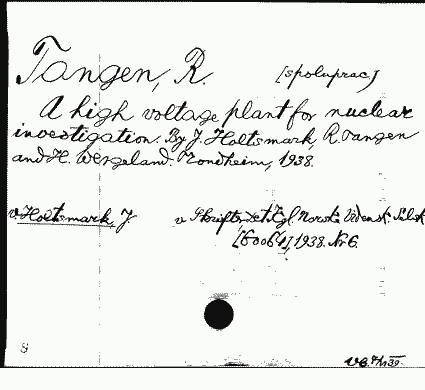 Tangen, R. [spoluprac]
A high voltage plant for nuclear
investigation. By J. Holtsmark, R. Tangen
and H. Wergeland. Trondheim, 1938.
v. Holtsmark, J. v Skrifter, Det Kgl. Norske Vidensk. Selsk.
[60064], 1938. Nr 6.
8